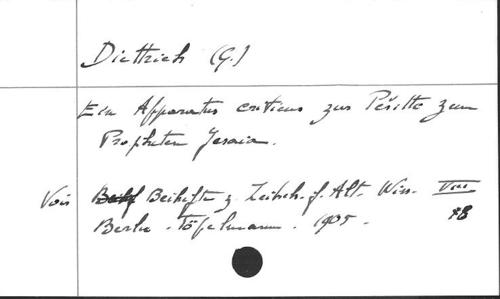 Diettrich (G.)
Ein Apparatus criticus zur Pešitto zum
Propheten Jesaia.
Voir Beihefte z. Zeitsch. f. Alt. Wiss. VIII
Berlin - Töpelmann. 1905. 48